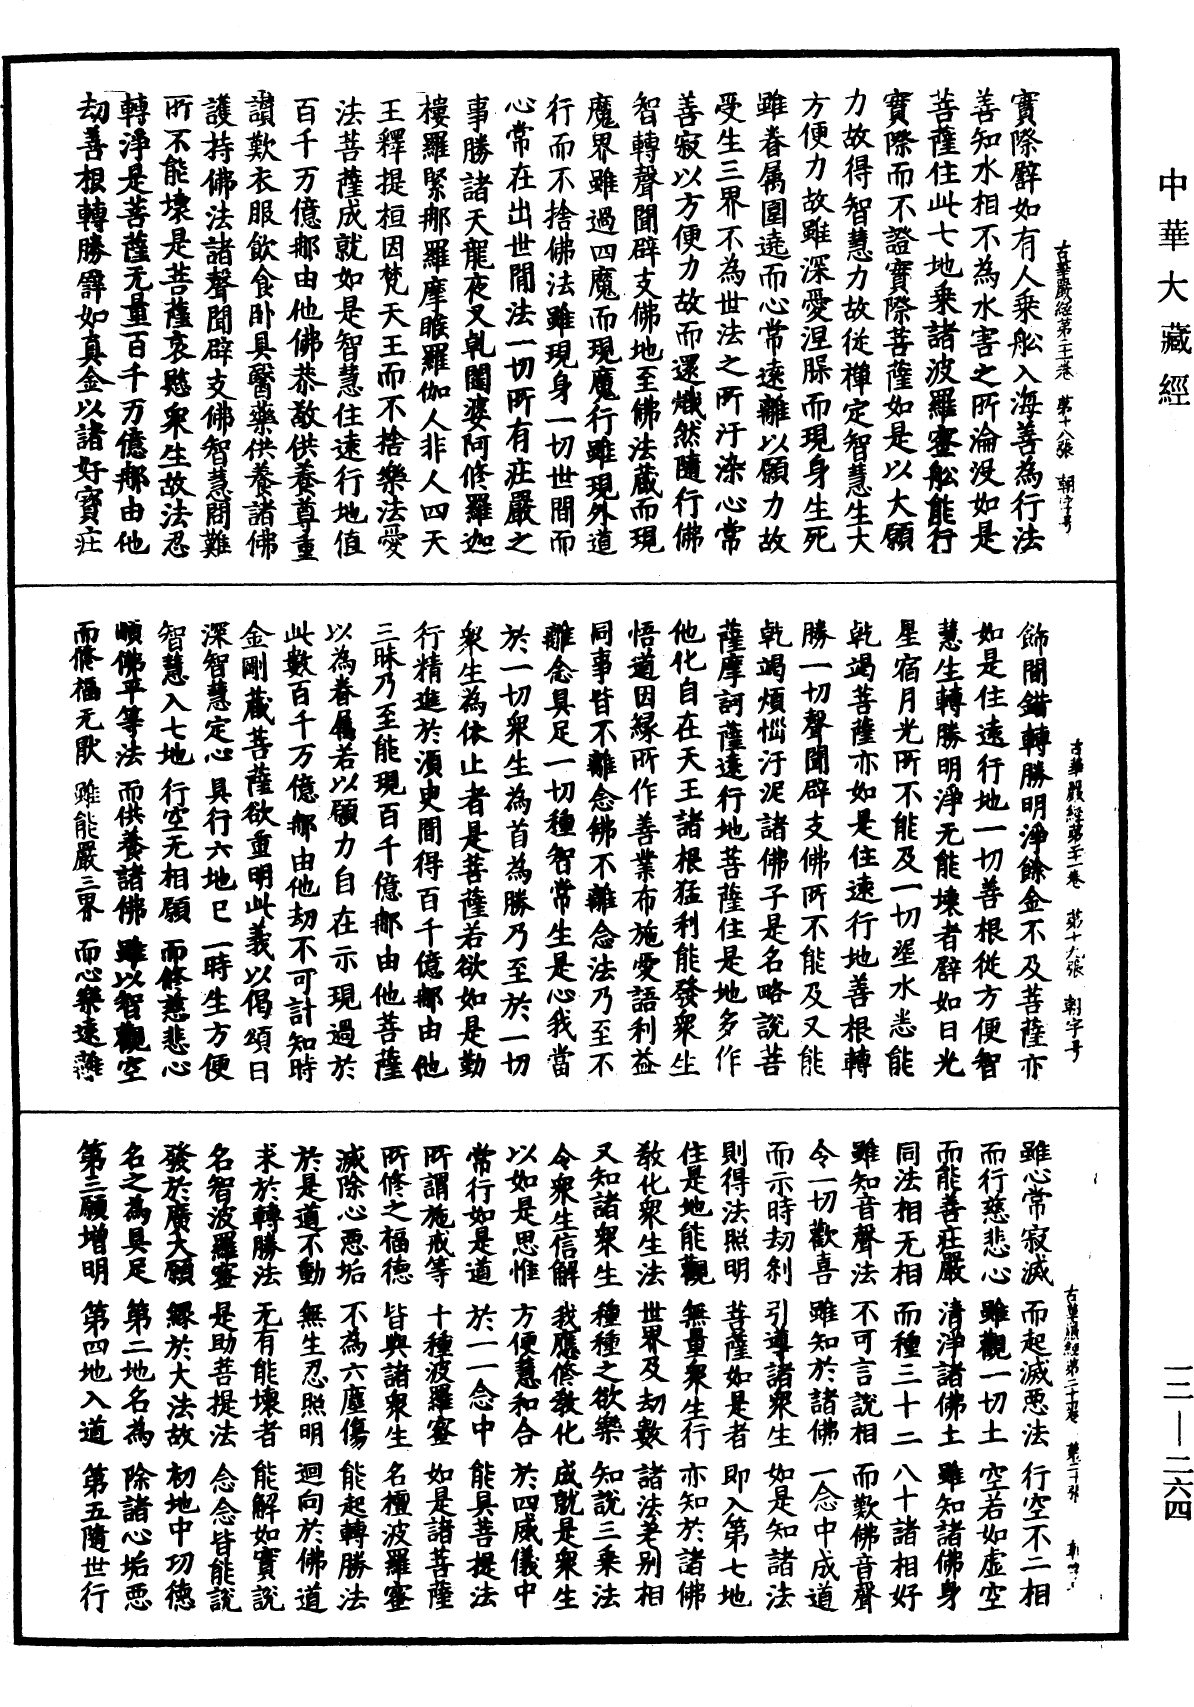 中華大藏經
古華嚴經第二十五卷 第十八張 朝字号
實際譬如有人乘舩入海善為行法
善知水相不為水害之所淪没如是
菩薩住此七地乘諸波羅蜜舩能行
實際而不證實際菩薩如是以大願
力故得智慧力故従禪定智慧生大
方便力故雖深愛涅槃而現身生死
雖眷属圍遶而心常遠離以願力故
受生三界不為世法之所汙染心常
善寂以方便力故而還熾然隨行佛
智轉聲聞辟支佛地至佛法蔵而現
魔界雖過四魔而現魔行雖現外道
行而不捨佛法雖現身一切世間而
心常在出世間法一切所有莊嚴之
事勝諸天龍夜叉乹闥婆阿修羅迦
樓羅緊那羅摩睺羅伽人非人四天
王釋提桓因梵天王而不捨樂法愛
法菩薩成就如是智慧住遠行地值
百千万億那由他佛恭敬供養尊重
讃歎衣服飲食卧具醫藥供養諸佛
護持佛法諸聲聞辟支佛智慧問難
所不能壞是菩薩哀愍衆生故法忍
轉淨是菩薩无量百千万億那由他
劫善根轉勝譬如真金以諸好寳莊
第十九張 朝字号
飾間錯轉勝明淨餘金不及菩薩亦
如是住遠行地一切善根從方便智
慧生轉勝明淨无能壞者譬如日光
星宿月光所不能及一切泥水悉能
乹竭菩薩亦如是住遠行地善根轉
勝一切聲聞辟支佛所不能及又能
乾竭煩惱汙泥諸佛子是名略說菩
薩摩訶薩遠行地菩薩住是地多作
他化自在天王諸根猛利能發衆生
悟道因緣所作善業布施愛語利益
同事皆不離念佛不離念法乃至不
離念具足一切種智常生是心我當
於一切衆生為首為勝乃至於一切
衆生為依止者是菩薩若欲如是勤
行精進於湏臾間得百千億那由他
三昧乃至能現百千億那由他菩薩
以為眷属若以願力自在示現過於
此數百千万億那由他劫不可計知時
金剛藏菩薩欲重明此義以偈頌曰
深智慧定心 具行六地已 一時生方便
智慧入七地 行空无相願 而修慈悲心
順佛平等法 而供養諸佛 雖以智觀空
而修福无猒 雖能嚴三界 而心樂遠離
雖心常寂滅 而起滅惡法 行空不二相
而行慈悲心 雖觀一切土 空若如虚空
而能善莊嚴 清淨諸佛土 雖知諸佛身
同法相无相 而種三十二 八十諸相好
雖知音聲法 不可言說相 而歎佛音聲
令一切歡喜 雖知於諸佛 一念中成道
而示時劫刹 引導諸衆生 如是知諸法
則得法照明 菩薩如是者 即入第七地
住是地能觀 無量衆生行 亦知於諸佛
教化衆生法 世界及劫數 諸法差别相
又知諸衆生 種種之欲樂 知說三乘法
令衆生信解 我應修教化 成就是衆生
以如是思惟 方便慧和合 於四威儀中
常行如是道 於一一念中 能具菩提法
所謂施戒等 十種波羅蜜 如是諸菩薩
所修之福德 皆與諸衆生 名檀波羅蜜
滅除心惡垢 不為六塵傷 能起轉勝法
於是道不動 無生忍照明 迴向於佛道
求於轉勝法 无有能壞者 能解如實說
名智波羅蜜 是助菩提法 念念皆能說
發於廣大願 緣於大法故 初地中功德
名之為具足 第二地名為 除諸心垢惡
第三願增明 第四地入道 第五隨世行
一二—二六四